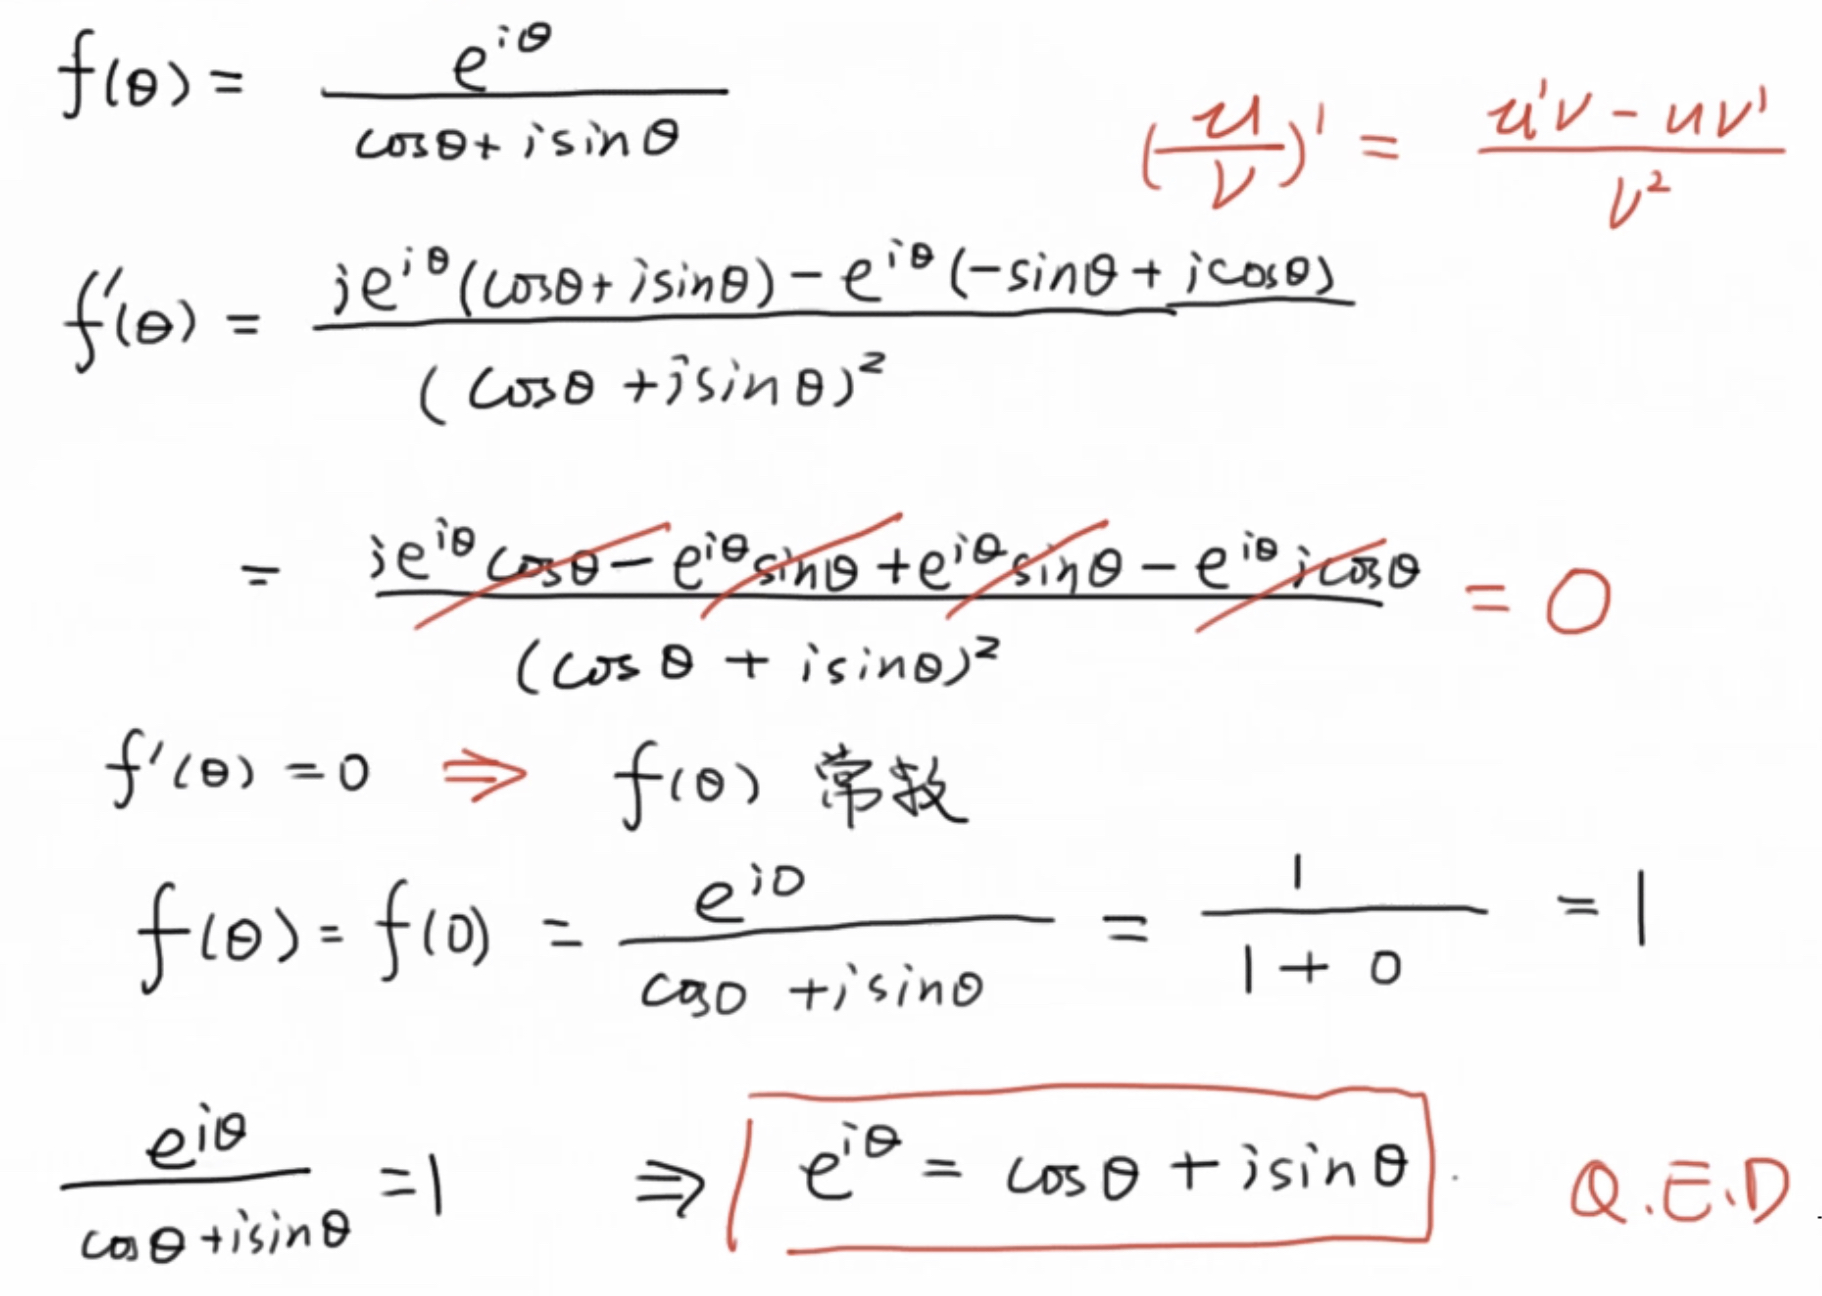 f(θ) = e^{iθ} / (cosθ + i sinθ)
(u/v)' = (u'v - uv') / v²
f'(θ) = (ie^{iθ}(cosθ + isinθ) - e^{iθ}(-sinθ + icosθ)) / (cosθ + isinθ)²
= (ie^{iθ}cosθ - e^{iθ}sinθ + e^{iθ}sinθ - e^{iθ}icosθ) / (cosθ + isinθ)² = 0
f'(θ) = 0 ⇒ f(θ) 常数
f(θ) = f(0) = e^{i0} / (cos0 + isin0) = 1 / (1 + 0) = 1
e^{iθ} / (cosθ + isinθ) = 1 ⇒ e^{iθ} = cosθ + isinθ. Q.E.D.